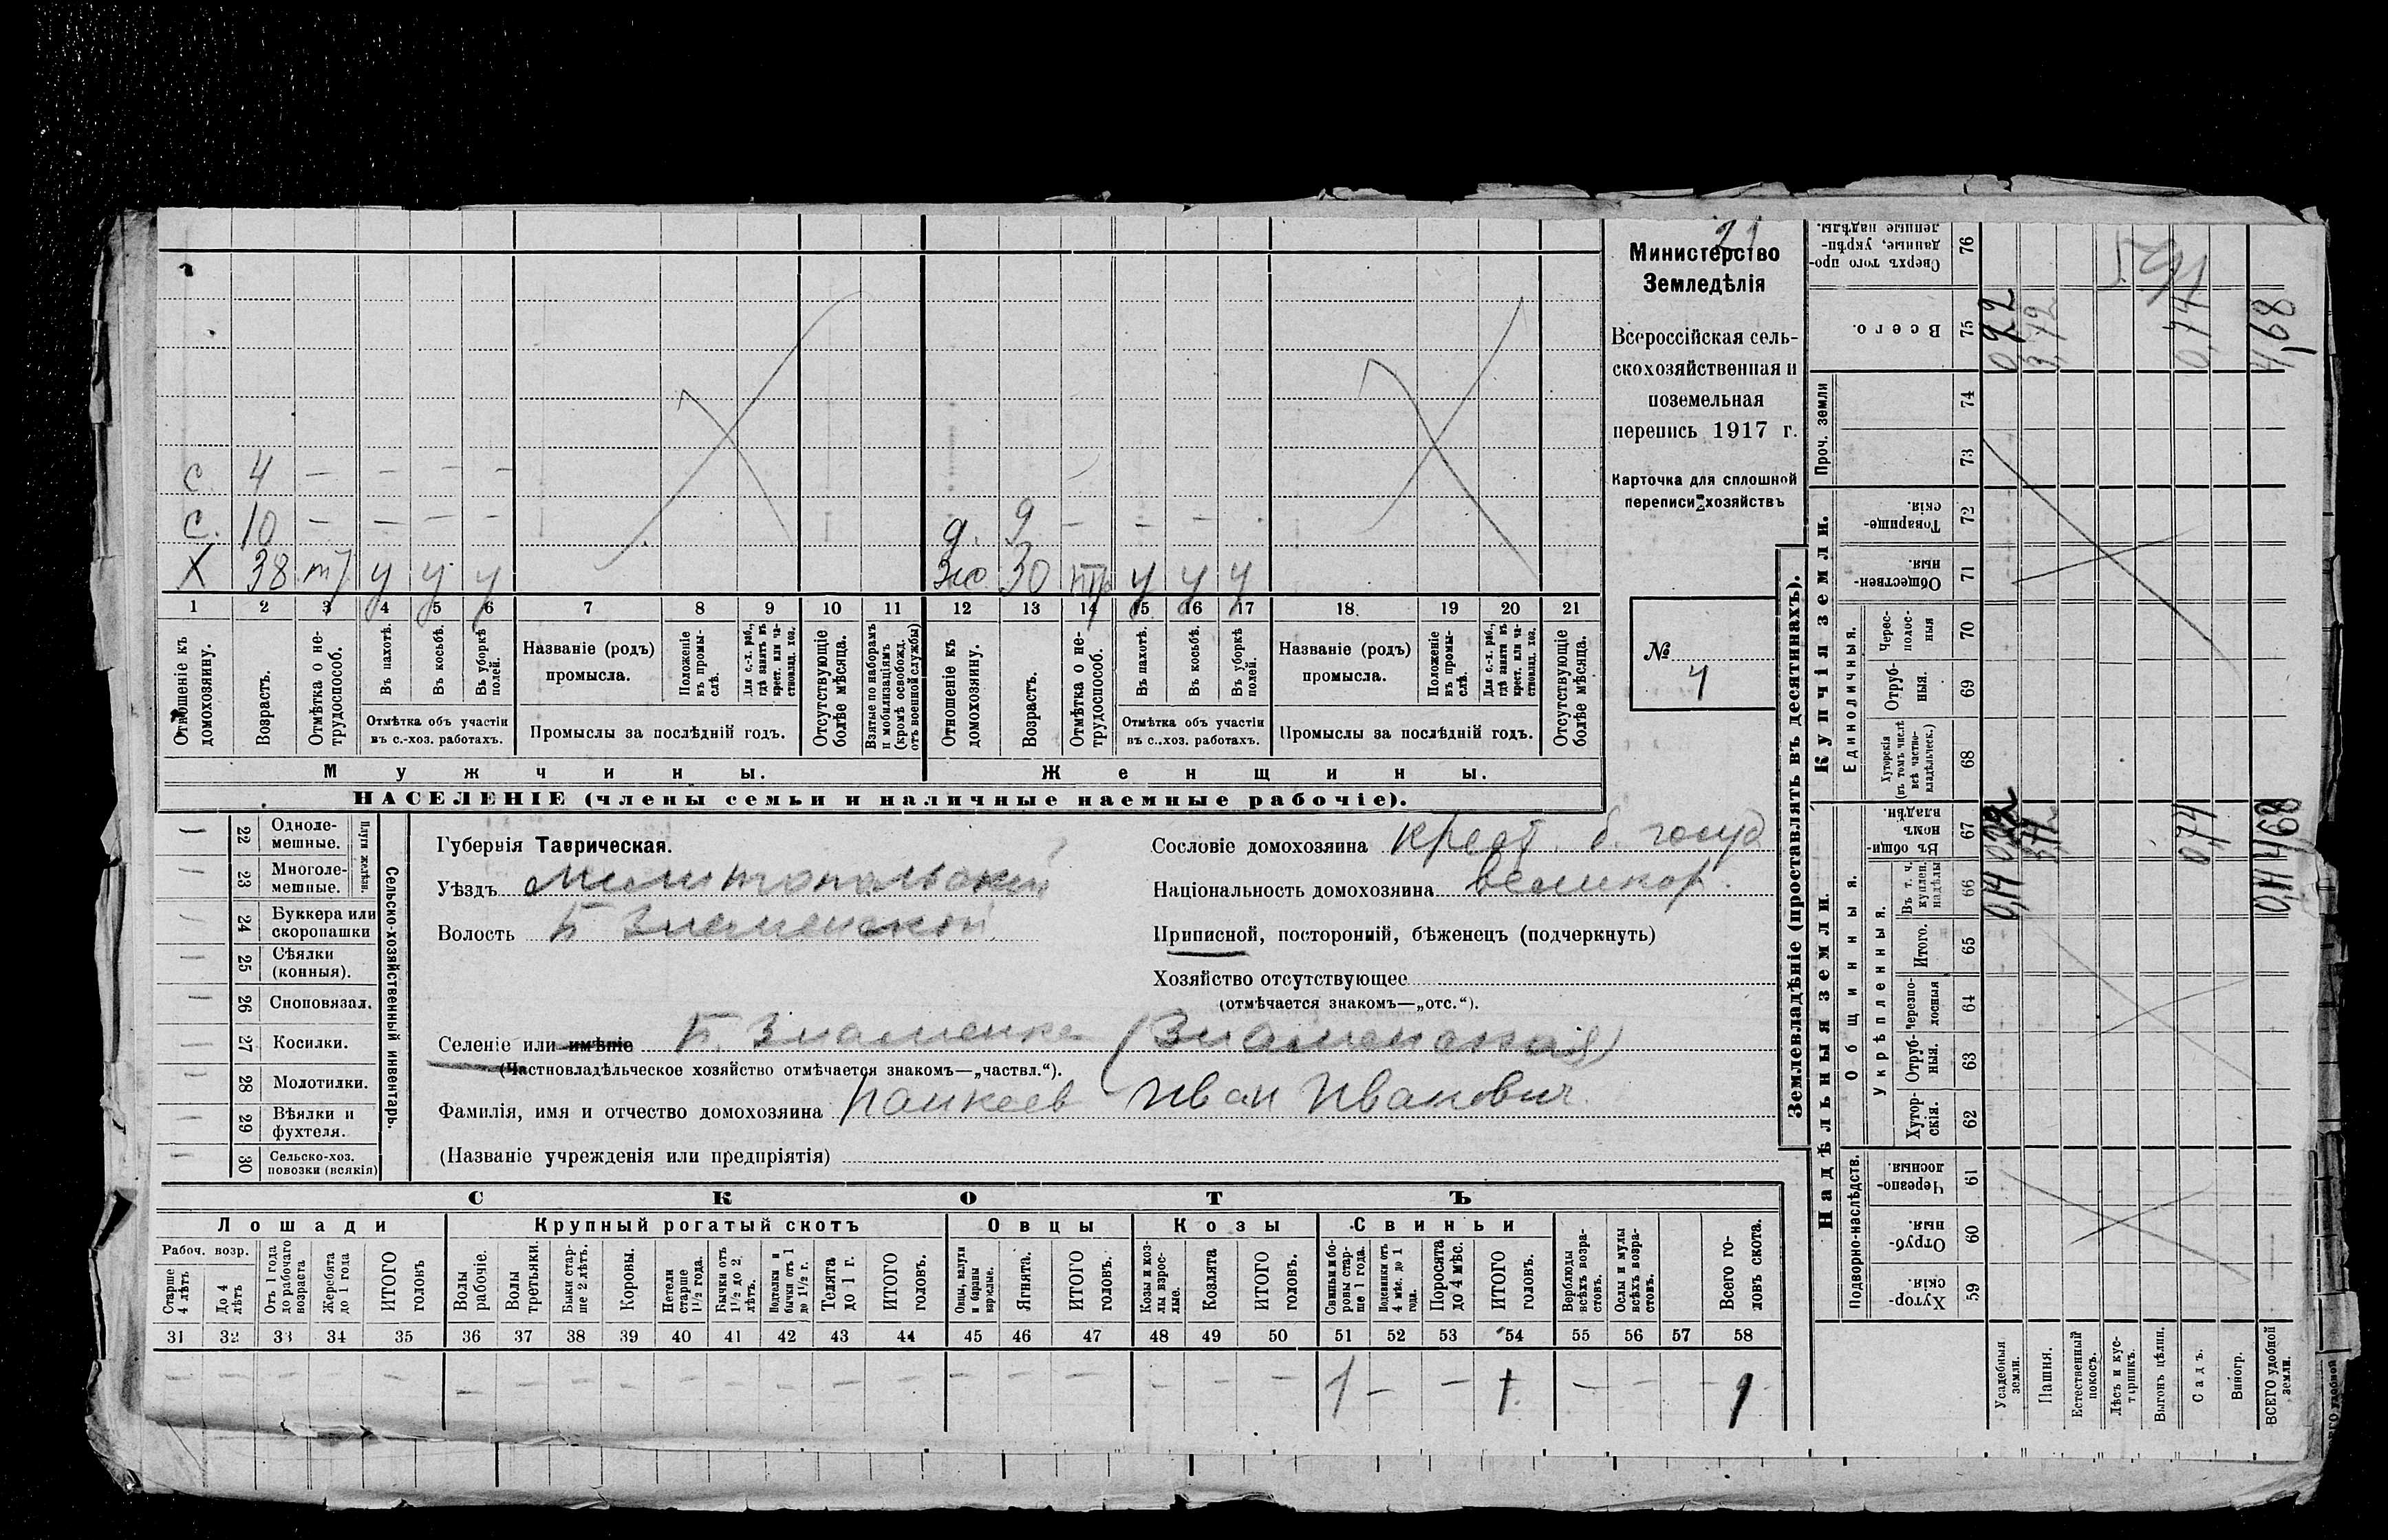 21
Министерство
Земледѣлія
Всероссійская сель-
скохозяйственная и
поземельная
перепись 1917 г.
Карточка для сплошной
переписи хозяйствъ
№ 4
с 4 — — — —
с. 10 — — — —
Х 38 т у у у
д. 9 — — —
30 у у у
1 2 3 4 5 6 7 8 9 10 11 12 13 14 15 16 17 18. 19 20 21
Отношеніе къ домохозяину.
Возрастъ.
Отмѣтка о не-трудоспособ.
Въ пахотѣ.
Въ косьбѣ.
Въ уборкѣ полей.
Отмѣтка объ участіи
въ с.-хоз. работахъ.
Названіе (родъ)
промысла.
Положеніе въ промы-слѣ.
Для с.-х. раб., гдѣ занятъ въ крест. или ча-стновлад. хоз.
Промыслы за послѣдній годъ.
Отсутствующіе болѣе мѣсяца.
Взятые по наборамъ и мобилизаціямъ (кромѣ освобожд. отъ военной службы)
Отношеніе къ домохозяину.
Возрастъ.
Отмѣтка о не-трудоспособ.
Въ пахотѣ.
Въ косьбѣ.
Въ уборкѣ полей.
Отмѣтка объ участіи
въ с.-хоз. работахъ.
Названіе (родъ)
промысла.
Положеніе въ промы-слѣ.
Для с.-х. раб., гдѣ занята въ крест. или ча-стновлад. хоз.
Промыслы за послѣдній годъ.
Отсутствующіе болѣе мѣсяца.
Мужчины.
Женщины.
НАСЕЛЕНІЕ (члены семьи и наличные наемные рабочіе).
Сельско-хозяйственный инвентарь.
Плуги желѣзн.
— 22 Одноле-мешные.
— 23 Многоле-мешные.
— 24 Буккера или скоропашки
— 25 Сѣялки (конныя).
— 26 Сноповязал.
— 27 Косилки.
— 28 Молотилки.
— 29 Вѣялки и фухтеля.
— 30 Сельско-хоз. повозки (всякія)
Губернія Таврическая.
Уѣздъ Мелитопольский
Волость Б Знаменской
Селеніе или имѣніе Б. Знаменка (Знаменская)
(Частновладѣльческое хозяйство отмѣчается знакомъ—„частвл.“).
Фамилія, имя и отчество домохозяина Панкеев Иван Иванович.
(Названіе учрежденія или предпріятія)
Сословіе домохозяина крест. б. госуд
Національность домохозяина великор.
Приписной, посторонній, бѣженецъ (подчеркнуть)
Хозяйство отсутствующее
(отмѣчается знакомъ—„отс.“).
СКОТЪ
Лошади
Крупный рогатый скотъ
Овцы
Козы
Свиньи
Рабоч. возр.
Старше 4 лѣтъ
До 4 лѣтъ
Отъ 1 года до рабочаго возраста
Жеребята до 1 года
ИТОГО головъ
Волы рабочіе.
Волы третьяки.
Быки стар-ше 2 лѣтъ.
Коровы.
Нетели старше 1½ года.
Бычки отъ 1½ до 2 лѣтъ.
Подтелки и бычки отъ 1 до 1½ г.
Телята до 1 г.
ИТОГО головъ.
Овцы, валухи и бараны взрослые.
Ягнята.
ИТОГО головъ.
Козы и коз-лы взрос-лые.
Козлята
ИТОГО головъ.
Свиньи и бо-ровы стар-ше 1 года.
Подсвинки отъ 4 мѣс. до 1 года.
Поросята до 4 мѣс.
ИТОГО головъ.
Верблюды всѣхъ возра-стовъ.
Ослы и мулы всѣхъ возра-стовъ.
Всего го-ловъ скота.
31 32 33 34 35 36 37 38 39 40 41 42 43 44 45 46 47 48 49 50 51 52 53 54 55 56 57 58
— — — — — — — — — — — — — — — — — — — — 1 — — 1 — — — 1
Землевладѣніе (проставлять въ десятинахъ).
Надѣльныя земли.
Купчія земли.
Проч. земли
Подворно-наслѣдств.
Общинныя.
Укрѣпленныя.
Единоличныя.
59 Хутор-скія.
60 Отруб-ныя.
61 Черезпо-лосныя.
62 Хутор-скія.
63 Отруб-ныя.
64 Черезпо-лосныя
65 Итого.
66 Въ т. ч. куплен. надѣлы
67 Въ общин-номъ владѣн.
68 Хуторскія (въ томъ числѣ всѣ частно-владѣльческ.)
69 Отруб-ныя.
70 Черес-полос-ныя
71 Обществен-ныя.
72 Товарище-скія.
73
74
75 Всего.
76 Сверхъ того про-данные, укрѣп-ленные надѣлы.
Усадебныя земли.
Пашня. 3,72
Естественный покосъ.
Лѣсъ и кус-тарникъ.
Выгонъ цѣлин.
Садъ. 0,74 0,74
Виногр.
ВСЕГО удобной земли. 4,68 4,68